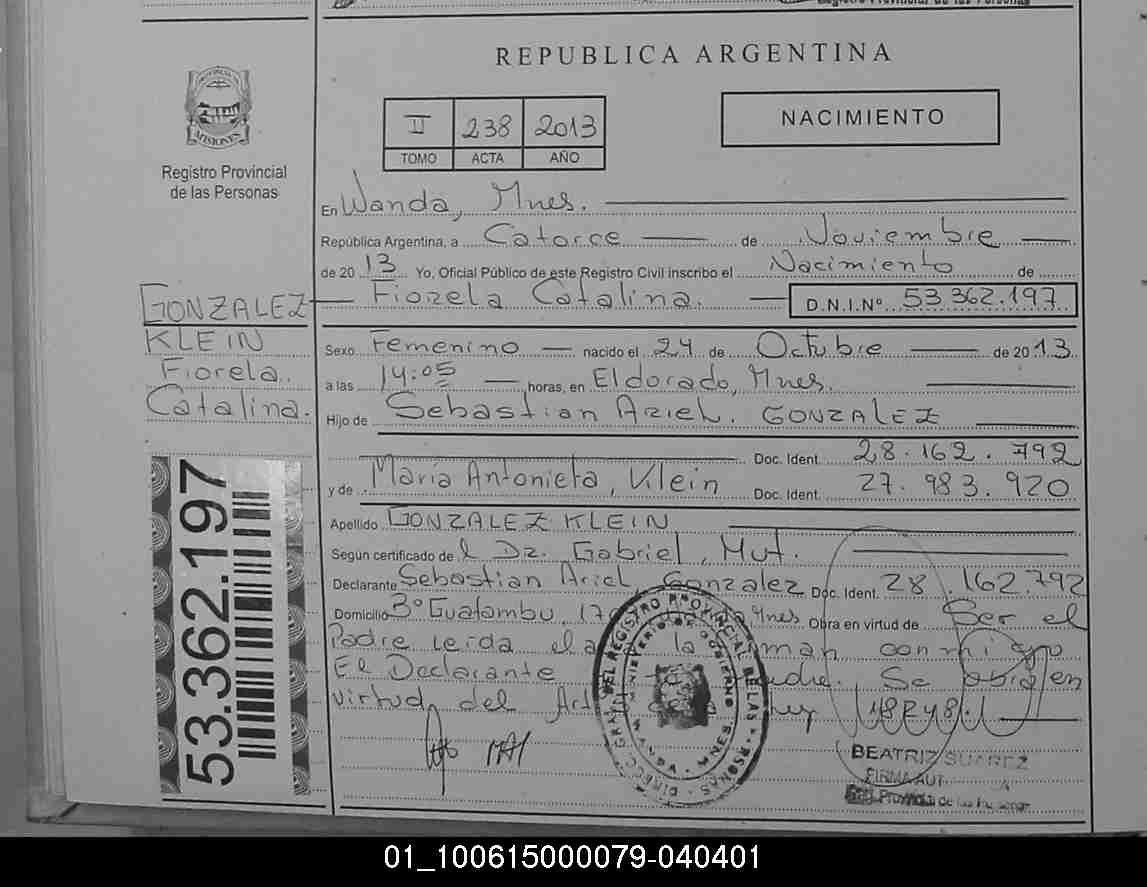 REPUBLICA ARGENTINA
MISIONES
Registro Provincial
de las Personas
II 238 2013
TOMO ACTA AÑO
NACIMIENTO
En Wanda, Mnes.
República Argentina, a Catorce de Noviembre
de 20 13 Yo, Oficial Público de este Registro Civil inscribo el Nacimiento de
Fiorela Catalina. D.N.I.Nº 53.362.197
GONZALEZ
KLEIN
Fiorela
Catalina.
Sexo Femenino nacido el 24 de Octubre de 20 13
a las 14:05 horas, en Eldorado, Mnes.
Hijo de Sebastian Ariel. GONZALEZ
Doc. Ident. 28.162.792
y de María Antonieta, Klein Doc. Ident. 27.983.920
Apellido GONZALEZ KLEIN
Según certificado de l Dr. Gabriel, Mut.
Declarante Sebastian Ariel Gonzalez Doc. Ident. 28.162.792
Domicilio Bº Guatambu, Mnes. Obra en virtud de Ser el
Padre leida el la conmigo
El Declarante Se obra en
virtud del Art
53.362.197
BEATRIZ SUAREZ
FIRMA AUT
Provincial de las Personas
01_100615000079-040401